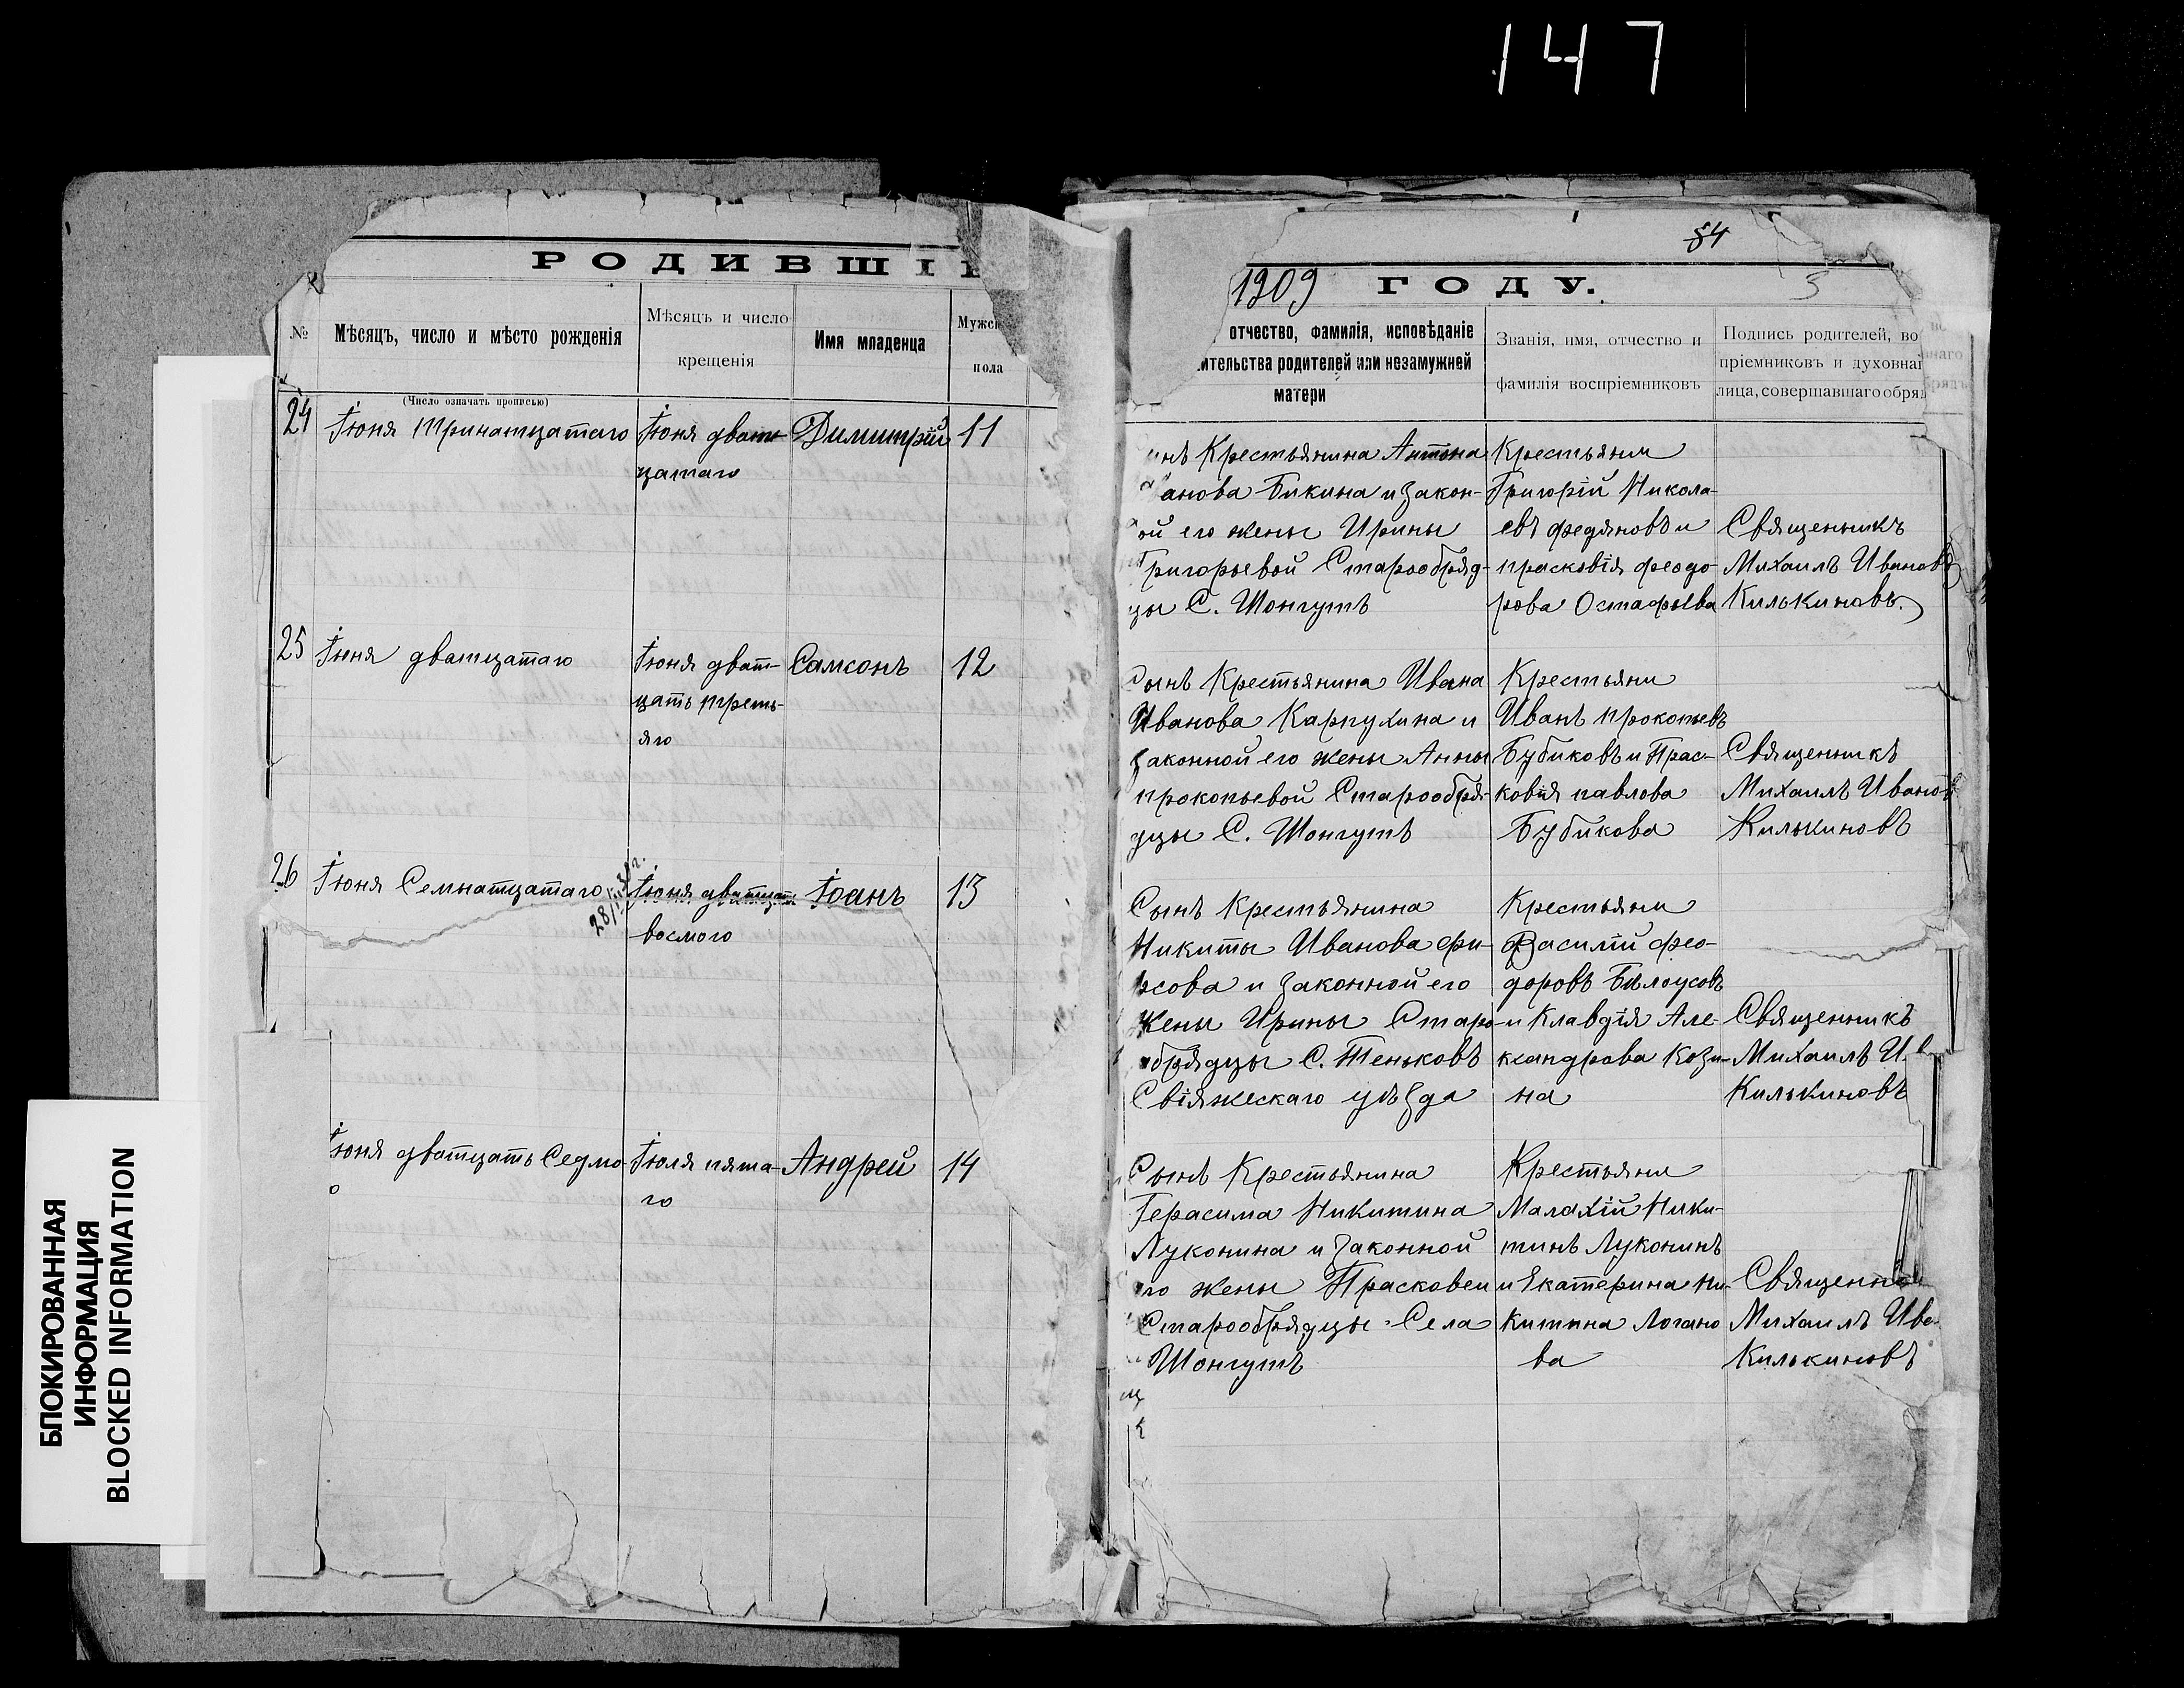 147
84
РОДИВШІ
1909 ГОДУ.
3
№
Мѣсяцъ, число и мѣсто рожденія
Мѣсяцъ и число
крещенія
Имя младенца
пола
отчество, фамилія, исповѣданіе
ительства родителей или незамужней
матери
Званія, имя, отчество и
фамилія воспріемниковъ
Подпись родителей, во
пріемниковъ и духовнаг
лица, совершавшаго обряд
(Число означать прописью)
24
Іюня Тринатцатаго
Іюня дват-
цатаго
Димитрій
11
Крестьянина Антона
анова Бикина и закон-
ой его жены Ирины
Григорьевой Старообряд-
цы С. Шонгутъ
Крестьяни
Григорій Никола-
евъ федяновъ и
прасковія феодо-
рова Остафьева
Священникъ
Михаилъ Ивановъ
Килькиновъ.
25
Іюня дватцатаго
Іюня дват-
цать треть-
яго
Самсонъ
12
Сынъ Крестьянина Ивана
Иванова Карпухина и
законной его жены Анны
прокопьевой Старообря-
дцы С. Шонгутъ
Крестьяни
Иванъ прокопьевъ
Бубиковъ и Прас-
ковія павлова
Бубикова
Священникъ
Михаилъ Иванов
Килькиновъ
26
Іюня Семнатцатаго
Іюня дватцать
восмого
Іоанъ
13
Сынъ Крестьянина
Никиты Иванова фи-
рсова и законной его
жены Ирины Старо-
обрядцы С. Теньковъ
Свіяжескаго уѣзда
Крестьяни
Василій фео-
доровъ Бѣлоусовъ
и Клавдія Але-
ксандрова Кози-
на
Священникъ
Михаилъ И
Килькиновъ
Іюня дватцать Седмо-
о
Іюля пята-
го
Андрей
14
Сынъ Крестьянина
Герасима Никитина
Луконина и законной
го жены Прасковеи
Старообрядцы Села
Шонгутъ
Крестьяни
Малахій Ники-
тинъ Луконинъ
и Екатерина Ни-
китина Логано
ва
Священн
Михаилъ Ива
Килькиновъ
БЛОКИРОВАННАЯ
ИНФОРМАЦИЯ
BLOCKED INFORMATION